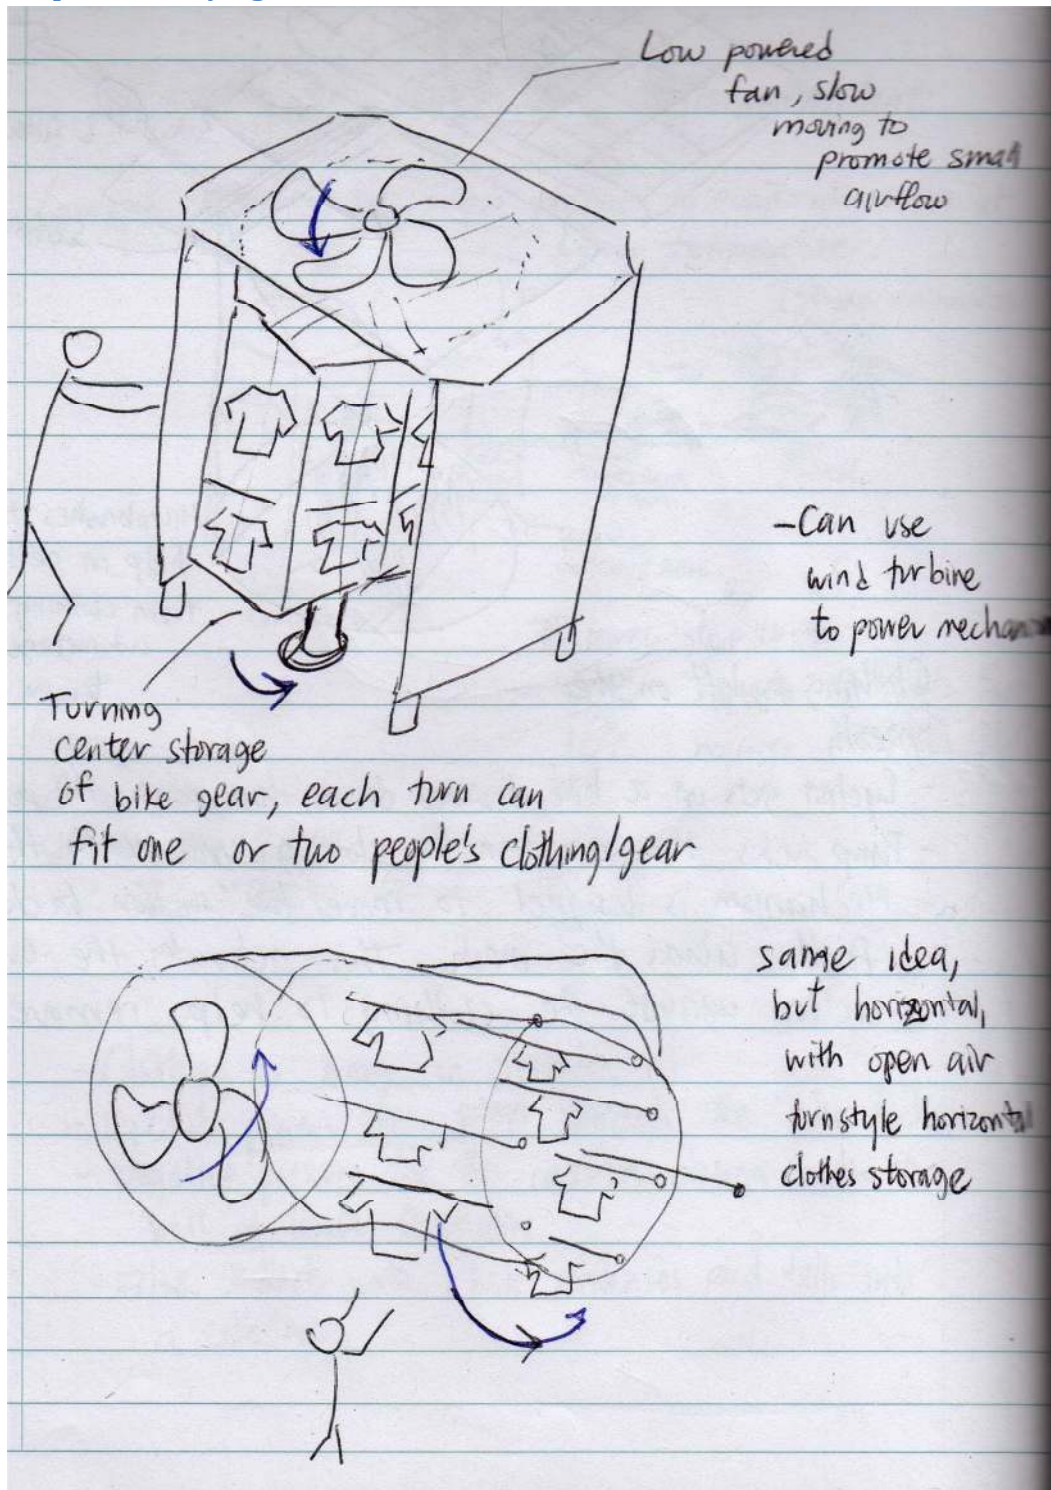 Low powered
fan, slow
moving to
promote small
airflow
-Can use
wind turbine
to power
Turning
center storage
of bike gear, each turn can
fit one or two people's clothing/gear
same idea,
but horizontal,
with open air
turnstyle horizontal
clothes storage